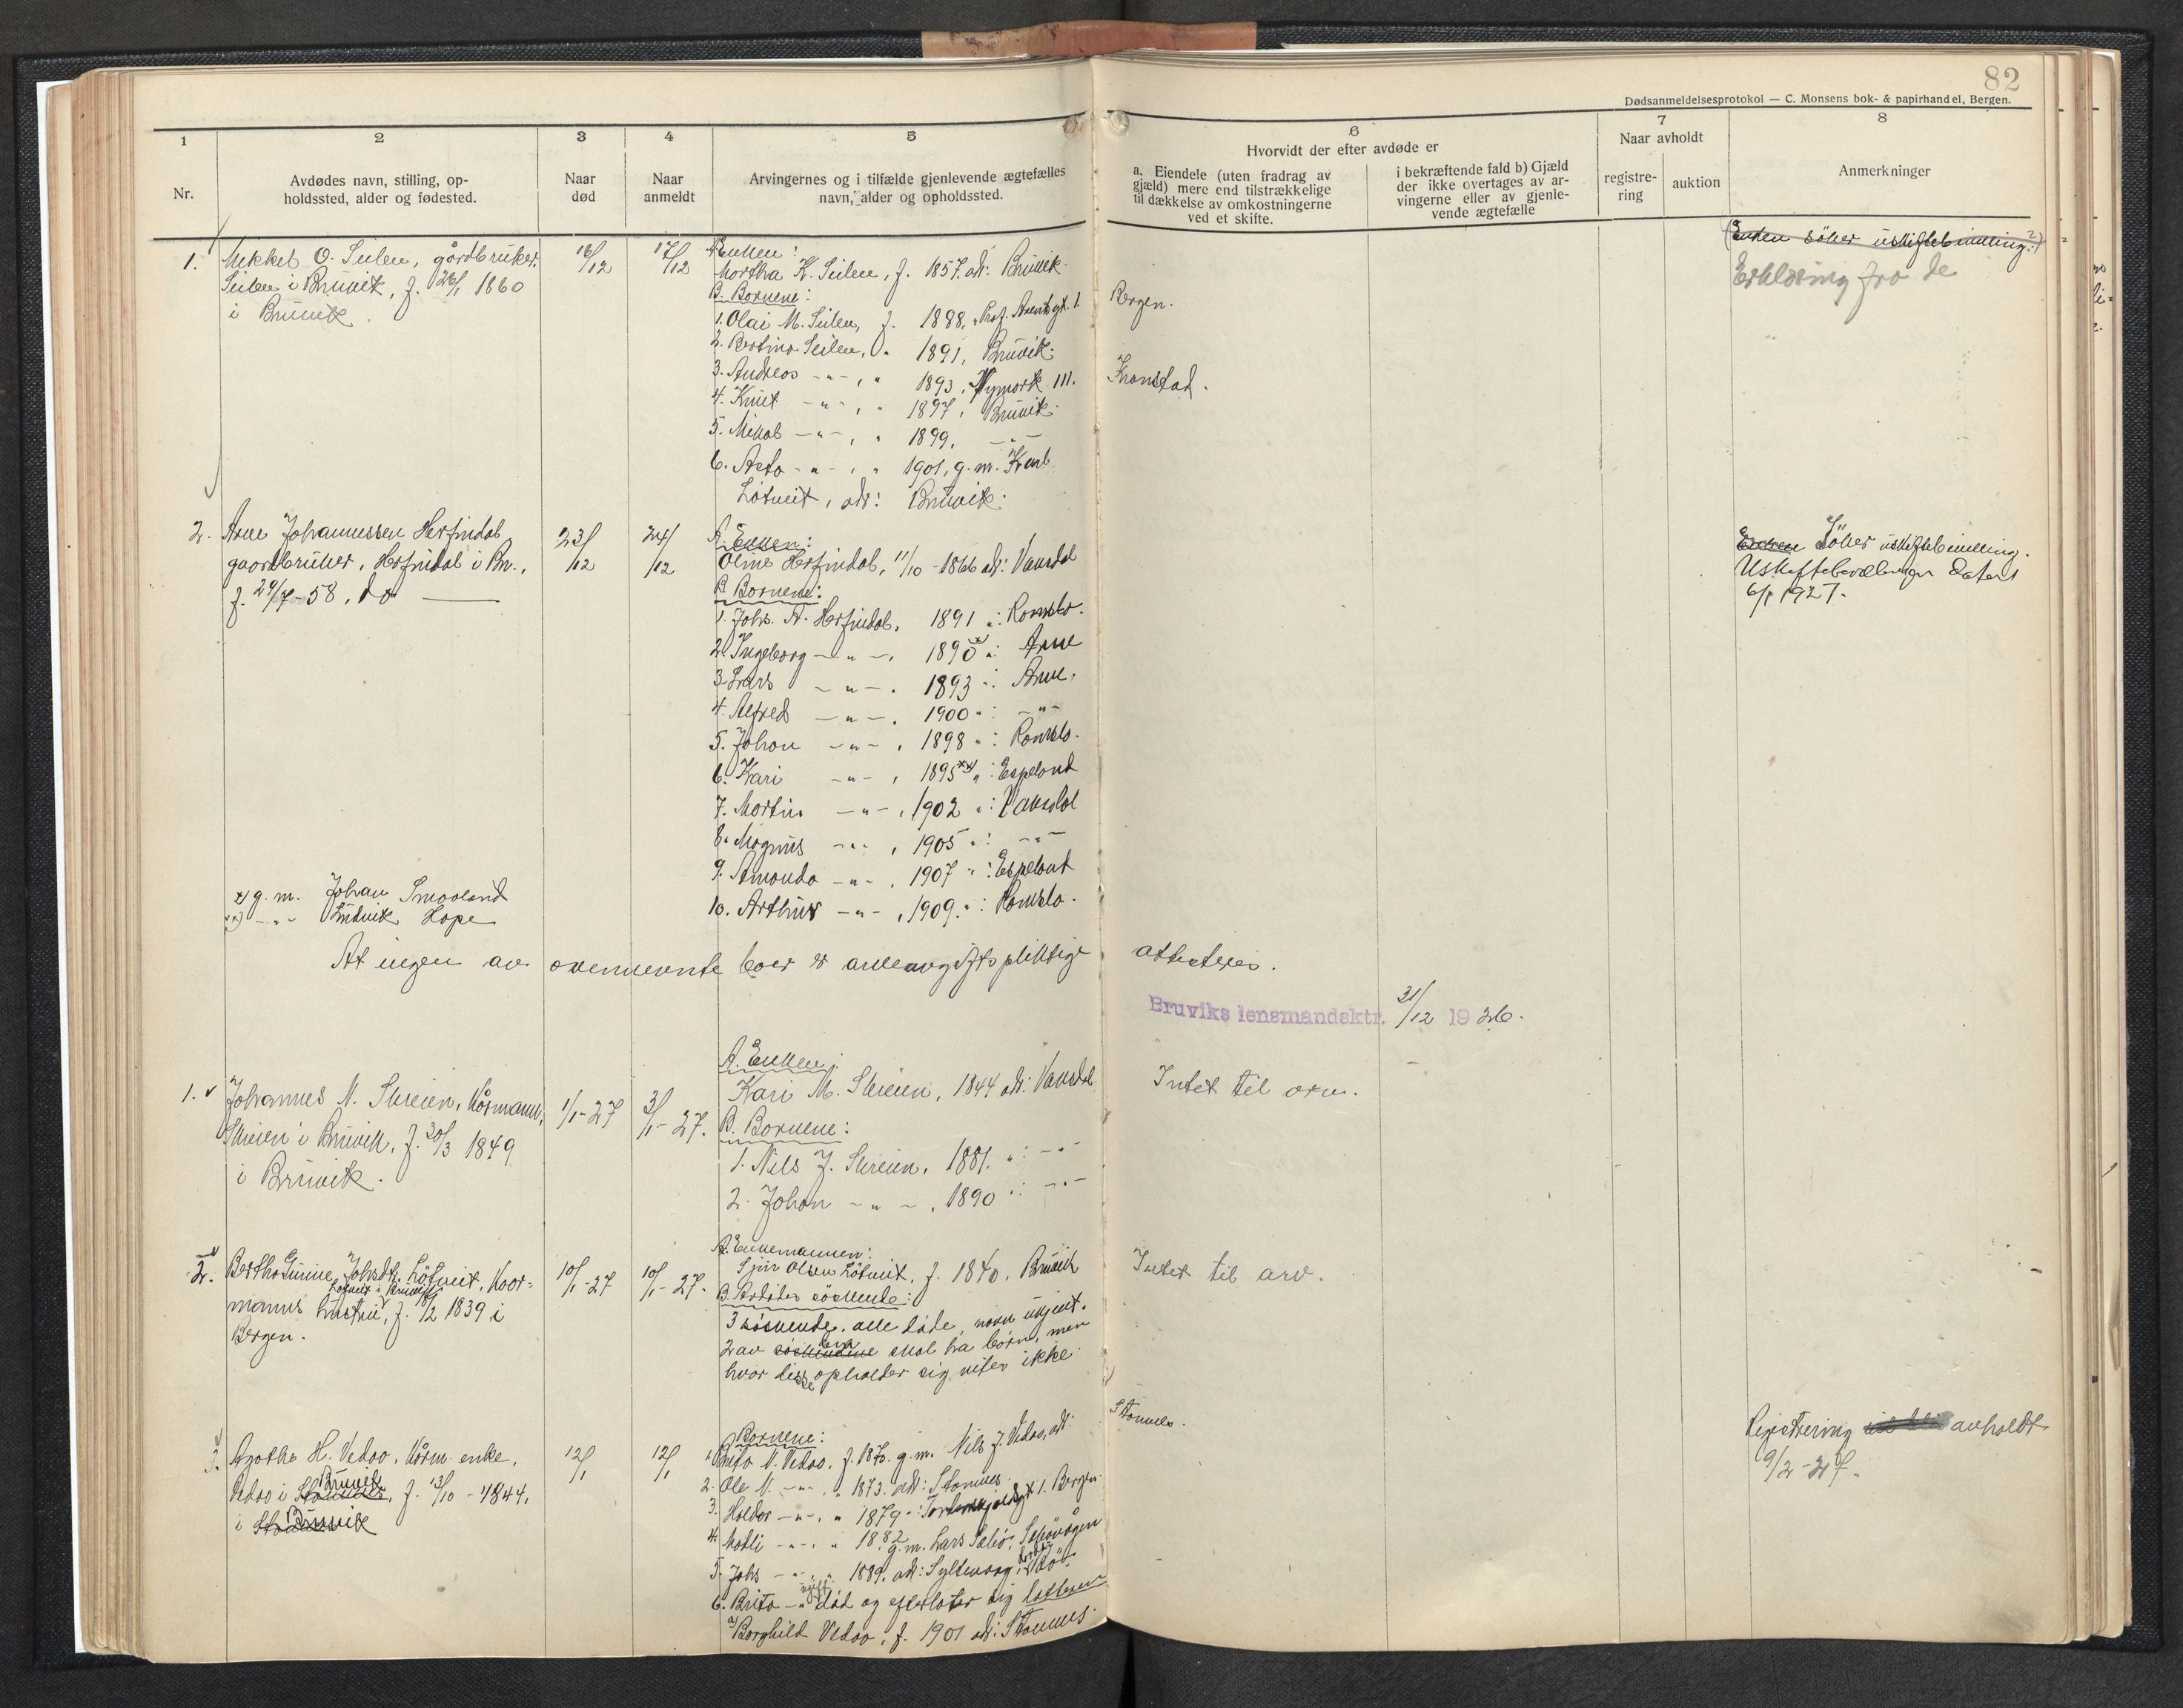 82
Dødsanmeldelsesprotokol — C. Monsens bok- & papirhandel, Bergen.
1
2
3
4
5
6
7
8
Nr.
Avdødes navn, stilling, op-
holdssted, alder og fødested.
Naar
død
Naar
anmeldt
Arvingernes og i tilfælde gjenlevende ægtefælles
navn, alder og opholdssted.
Hvorvidt der efter avdøde er
a. Eiendele (uten fradrag av
gjæld) mere end tilstrækkelige
til dækkelse av omkostningerne
ved et skifte.
i bekræftende fald b) Gjæld
der ikke overtages av ar-
vingerne eller av gjenle-
vende ægtefælle
Naar avholdt
registre-
ring
auktion
Anmerkninger
1. Mikkel O. Seilen, gårdbruker, 16/12 17/12
Seilen i Bruvik, f. 26/1 1860
i Bruvik.
Enken:
Martha K. Seilen, f. 1857. adr: Bruvik.
B. Børnene:
1. Olai M. Seilen, f. 1888, " Prof. gt. 1. Bergen.
2. Bertina Seilen, " 1891, Bruvik.
3. Andreas -"-, " 1893, Nymark 111. Kronstad.
4. Knut -"-, " 1897, Bruvik.
5. Mikal -"-, " 1899, -"-
6. -"-, " 1901, g. m. Karl
Løtveit, adr: Bruvik.
(Enken søker uskiftebevilling?)
Erklæring fra de
2. Arne Johannessen Herfindal 23/12 24/12
gaardbruker, Herfindal i Br.,
f. 29/7-58, do
A. Enken:
Oline Herfindal, 11/10-1866 adr: Vaksdal
B. Børnene:
1. Johs. A. Herfindal, 1891 ": Romslo.
2. Ingeborg -"-, 1890 x) ": Arne
3. Lars -"-, 1893 ": Arne,
4. Alfred -"-, 1900 ": -"-
5. Johan -"-, 1898 ": Romslo.
6. Kari -"-, 1895 xx) ": Espeland
7. Martin -"-, 1902 ": Vaksdal
8. Magnus -"-, 1905 ": -"-
9. Amanda -"-, 1907 ": Espeland
10. Arthur -"-, 1909. ": Romslo.
Enken Søker uskiftebevilling.
Uskiftebevilling datert
6/1 1927.
x) g. m. Johan Smaaland
xx) -"- Ludvik Hope
At ingen av ovennevnte boer er arveavgiftspliktige attesteres.
Bruviks lensmandsktr. 31/12 1926.
1. Johannes N. Skreien, kårmann, 1/1-27 3/1-27.
Skreien i Bruvik, f. 30/3 1849
i Bruvik.
A. Enken:
Kari M. Skreien, 1844 adr: Vaksdal
B. Børnene:
1. Nils J. Skreien, 1881. ": -"-
2. Johan -"-, 1890 ": -"-
Intet til arv.
2. Johsdtr. Løtveit, kaar- 10/1-27 10/1-27.
Løtveit i Bruvik
manns hustru, f. /2 1839 i
Bergen.
A. Enkemannen:
Sjur Olsen Løtveit, f. 1840, Bruvik
B. Avdødes søskende:
3 søskende, alle døde, navn ukjent.
2 av søskendene skal ha børn, men
hvor disse opholder sig vites ikke.
Intet til arv.
3. Agatha H. Vedaa, kårm. enke, 12/1 12/1
Vedaa i Stamnes Bruvik, f. 13/10-1844,
i Bruvik
Børnene:
1. Brita N. Vedaa, f. 1870. g. m. Nils J. Vedaa, adr: Stamnes.
2. Ole N. -"-, " 1873. adr: Stamnes.
3. Haldor -"-, " 1879 ": Tordenskjoldsgt 1. Bergen.
4. Matli -"-, " 1882 g. m. Lars Sæbø, Seimvågen
5. Johs -"-, " 1889, adr:
6. Brita -"- død og efterlater sig datteren
a) Borghild Vedaa, f. 1901 adr: Stamnes.
Registrering avholdt
9/2-27.